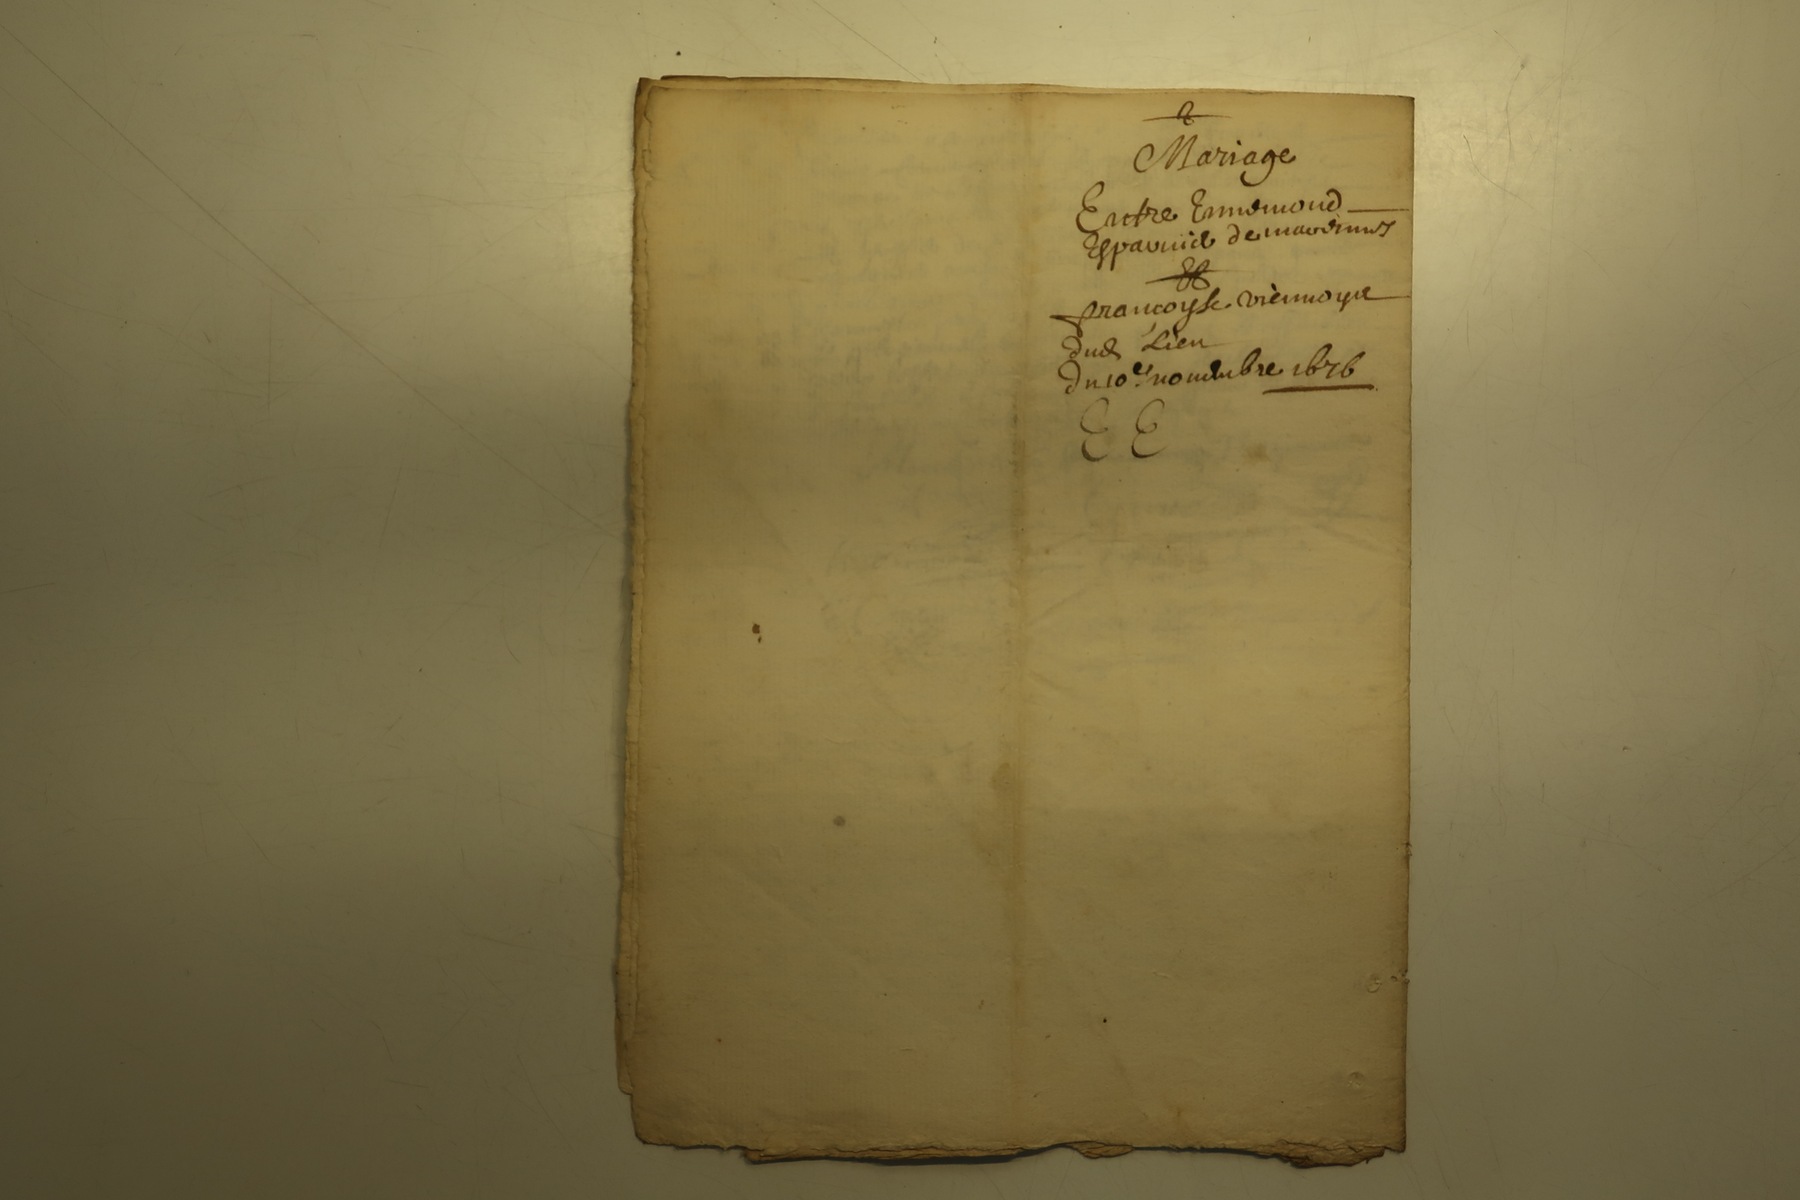 Mariage
Entre Ennemond
Esparuié de
Et
francoyse viennoyse
dud Lieu
du 10e novembre 1676
E E